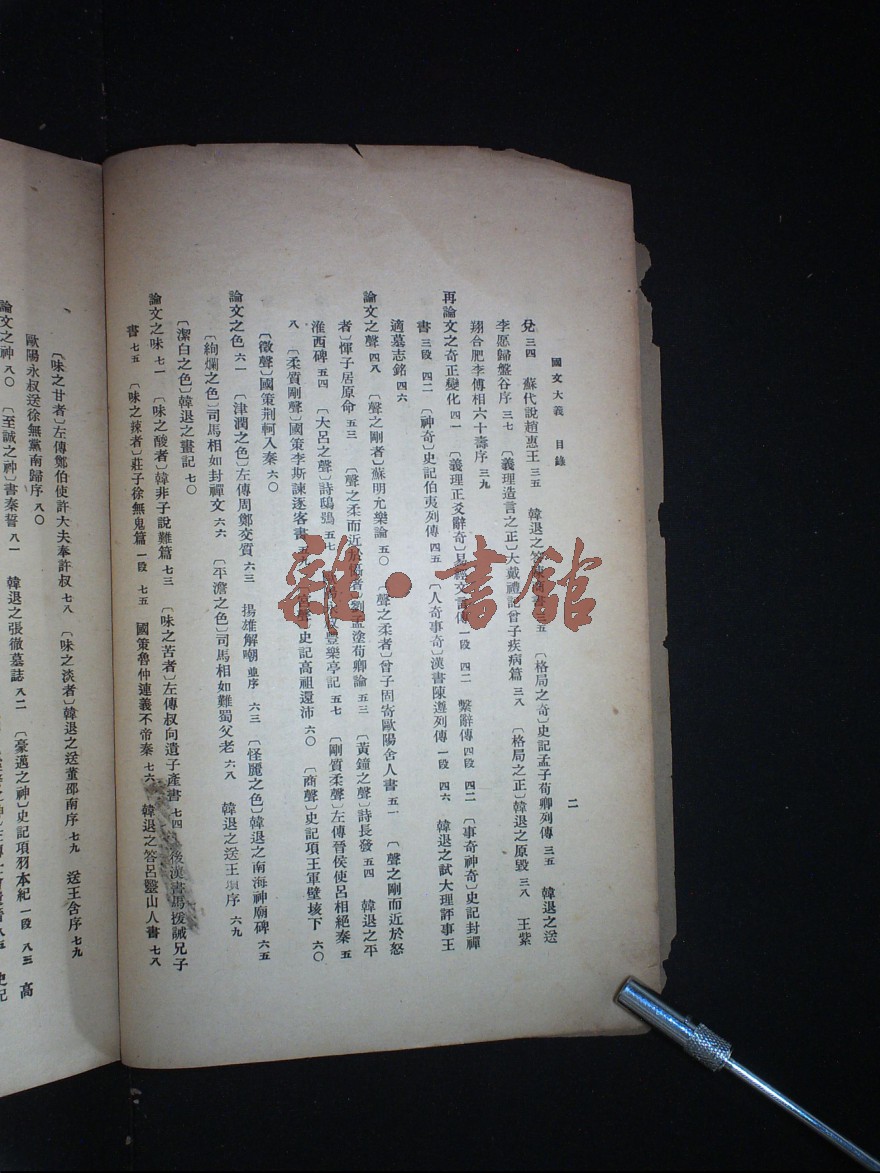 國文大義 目錄
二
兌 三四 蘇代說趙惠王 三五 韓退之答陳商書 三五 〔格局之奇〕史記孟子荀卿列傳 三五 韓退之送
李愿歸盤谷序 三七 〔義理造言之正〕大戴禮記曾子疾病篇 三八 〔格局之正〕韓退之原毀 三八 王紫
翔合肥李傅相六十壽序 三九
再論文之奇正變化 四一 〔義理正爻辭奇〕易經文言傳 一段 四二 繫辭傳 四段 四二 〔事奇神奇〕史記封禪
書 三段 四二 〔神奇〕史記伯夷列傳 四五 〔人奇事奇〕漢書陳遵列傳 一段 四六 韓退之試大理評事王
適墓志銘 四六
論文之聲 四八 〔聲之剛者〕蘇明允樂論 五〇 〔聲之柔者〕曾子固寄歐陽舍人書 五一 〔聲之剛而近於怒
者〕惲子居原命 五三 〔聲之柔而近於 者〕劉孟塗荀卿論 五三 〔黃鐘之聲〕詩長發 五四 韓退之平
淮西碑 五四 〔大呂之聲〕詩鴟鴞 五七 豐樂亭記 五七 〔剛質柔聲〕左傳晉侯使呂相絕秦 五
八 〔柔質剛聲〕國策李斯諫逐客書 五九 史記高祖還沛 六〇 〔商聲〕史記項王軍壁垓下 六〇
〔徵聲〕國策荆軻入秦 六〇
論文之色 六一 〔津潤之色〕左傳周鄭交質 六三 揚雄解嘲 並序 六三 〔怪麗之色〕韓退之南海神廟碑 六五
〔絢爛之色〕司馬相如封禪文 六六 〔平澹之色〕司馬相如難蜀父老 六八 韓退之送王塤序 六九
〔潔白之色〕韓退之畫記 七〇
論文之味 七一 〔味之酸者〕韓非子說難篇 七三 〔味之苦者〕左傳叔向遺子產書 七四 後漢書馬援誡兄子
書 七五 〔味之辣者〕莊子徐無鬼篇 一段 七五 國策魯仲連義不帝秦 七六 韓退之答呂毉山人書 七八
〔味之甘者〕左傳鄭伯使許大夫奉許叔 七八 〔味之淡者〕韓退之送董邵南序 七九 送王含序 七九
歐陽永叔送徐無黨南歸序 八〇
論文之神 八〇 〔至誠之神〕書秦誓 八一 韓退之張徹墓誌 八二 〔豪邁之神〕史記項羽本紀 一段 八三 高
史記
雜·書館